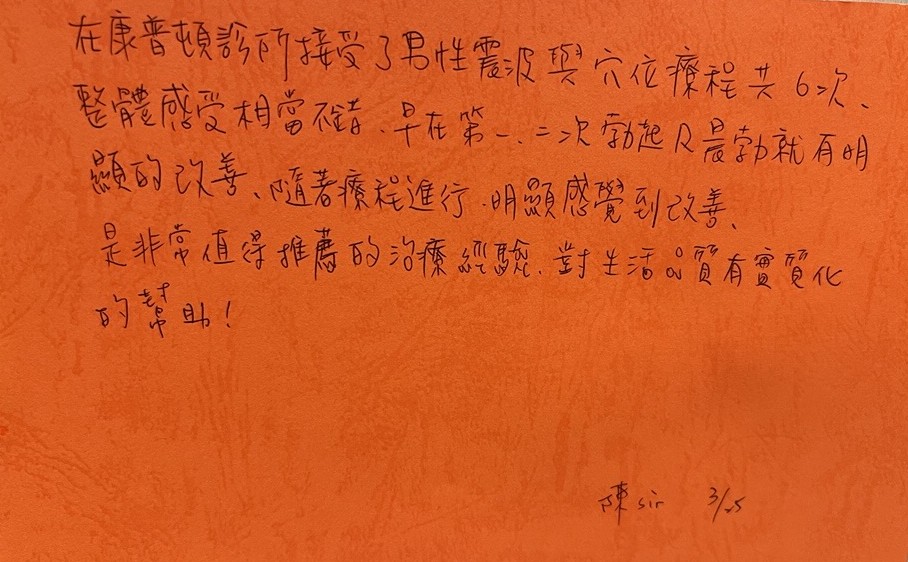 在康普頓診所接受了男性震波與穴位療程共6次、
整體感受相當不錯、早在第一、二次勃起及晨勃就有明
顯的改善、隨著療程進行、明顯感覺到改善、
是非常值得推薦的治療經驗、對生活品質有實質化
的幫助!
陳sir 3/25